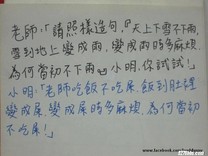 老師:「請照樣造句,『天上下雪不下雨,
雪到地上變成雨,變成雨時多麻煩,
為何當初不下雨』小明,你試試!」
小明:「老師吃飯不吃屎,飯到肚裡
變成屎,變成屎時多麻煩,為何當初
不吃屎!」